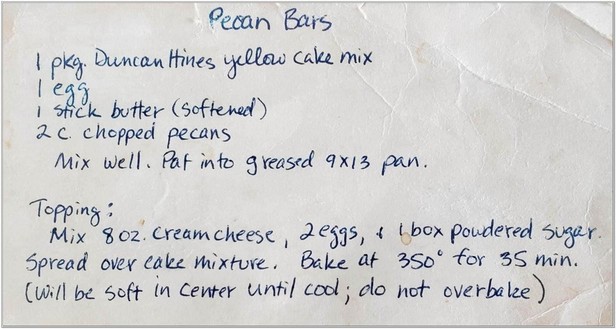 Pecan Bars
1 pkg. Duncan Hines yellow cake mix
1 egg
1 stick butter (softened)
2 c. chopped pecans
Mix well. Pat into greased 9x13 pan.
Topping:
Mix 8 oz. cream cheese, 2 eggs, & 1 box powdered sugar.
Spread over cake mixture. Bake at 350° for 35 min.
(Will be soft in center until cool; do not overbake)